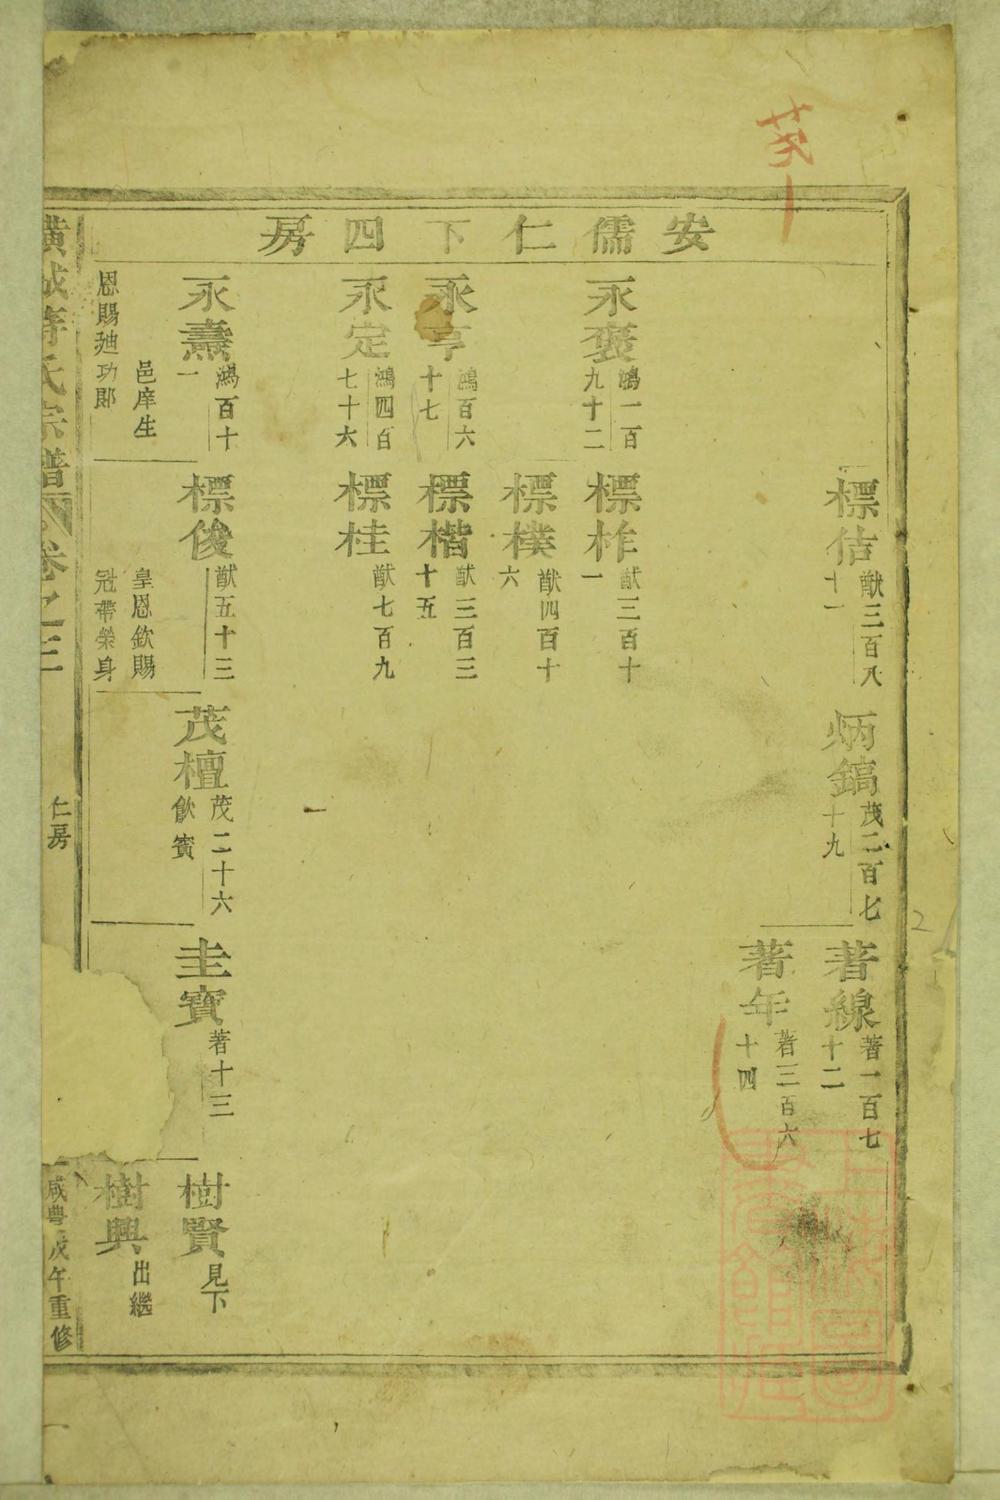 安儒仁下四房
標佶 猷三百八十一
炳鎬 茂二百七十九
著線 著一百七十二
著年 著三百六十四
永褒 鴻一百九十二
標柞 猷三百十一
標樸 猷四百十六
永亨 鴻百六十七
標楷 猷三百三十五
永定 鴻四百七十六
標桂 猷七百九
永燾 鴻百十一
邑庠生
恩賜廸功郎
標俊 猷五十三
皇恩欽賜
冠帶榮身
茂檀 茂二十六
飲賓
圭寶 著十三
樹賢 見下
樹興 出繼
氏宗譜 卷之三 仁房 咸豊戊午重修